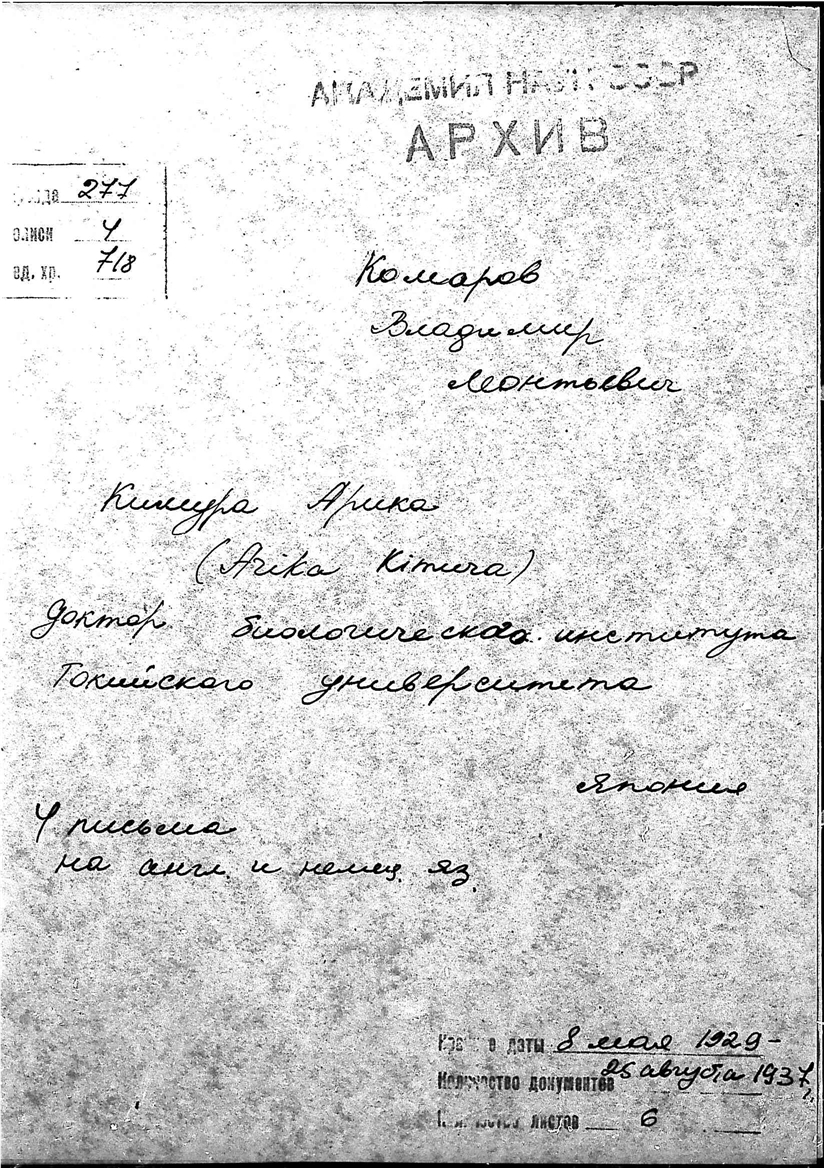 АКАДЕМИЯ НАУК СССР
АРХИВ
фонда 277
описи 4
ед. хр. 718
Комаров
Владимир
Леонтьевич
Кимура Арика
(Arika Kimura)
Доктор биологического института
Токийского университета
Япония
4 письма
на англ. и немец. яз.
Крайние даты 8 мая 1929 -
25 августа 1937 г.
Количество документов
Количество листов 6